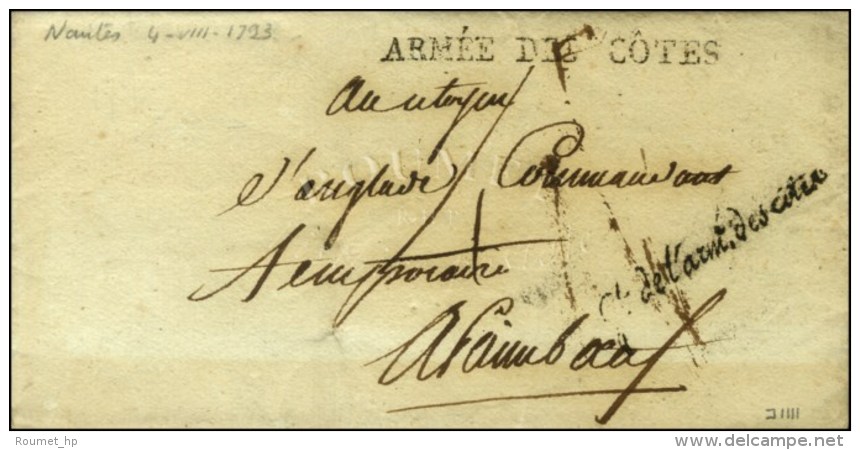 Nantes 4-VIII-1793
ARMÉE DES CÔTES
Au citoyen
L'anglade Commandant
temporaire
A Paimboeuf
de l'arm. des côtes
Roumet_hp
www.delcampe.net